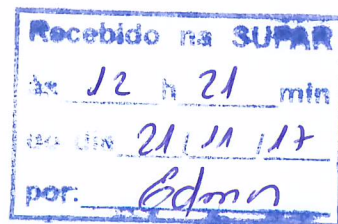 Recebido na SUPAR
às 12 h 21 min
do dia 21/11/17
por: